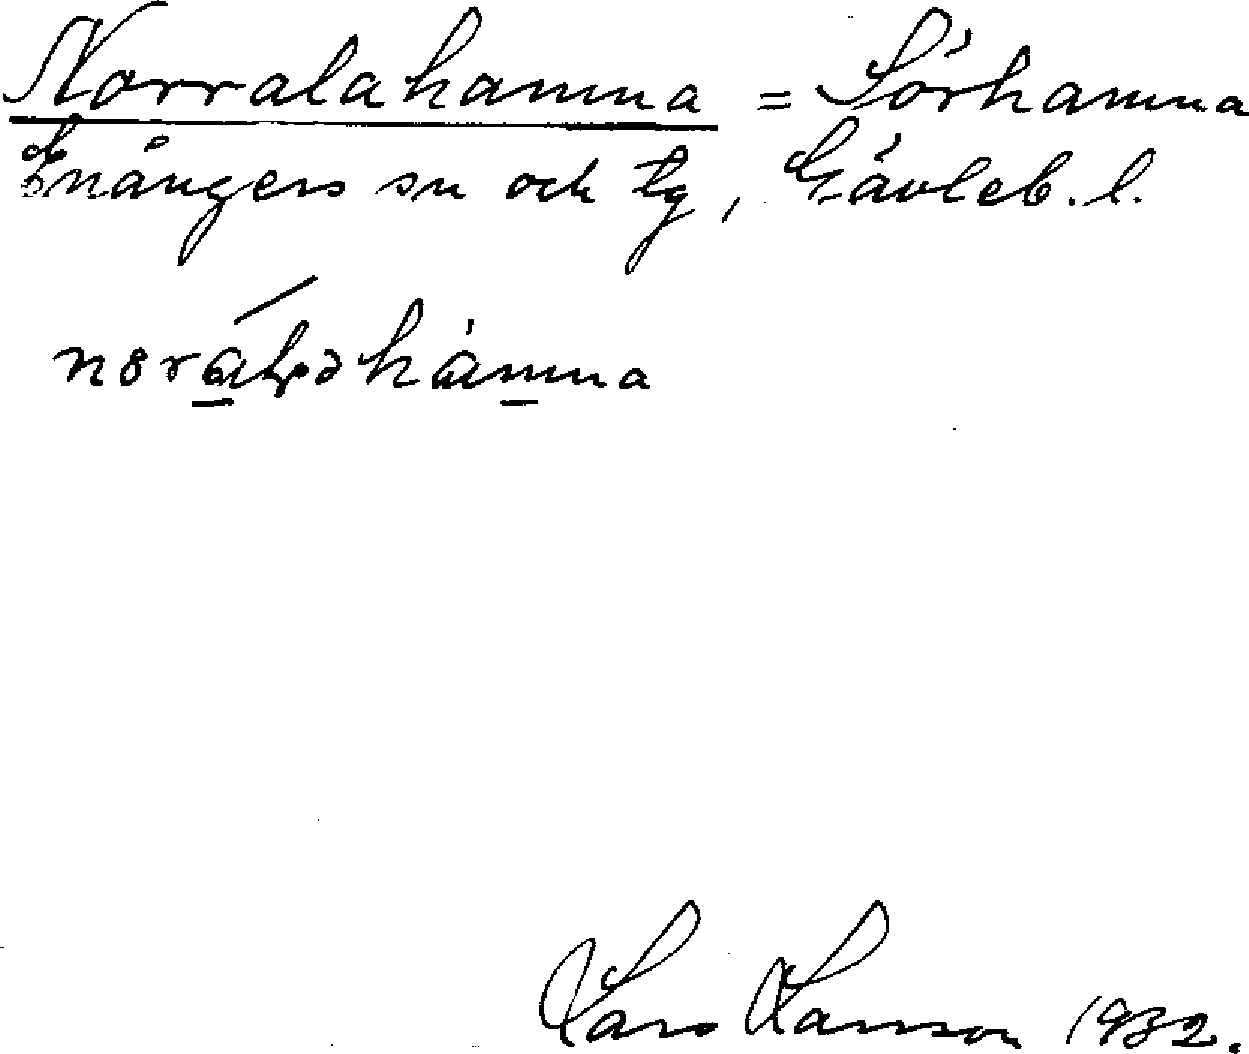 Norralahamna = Sörhamna
Enångers sn och tg, Gävleb. l.
Lars Larsson 1932.